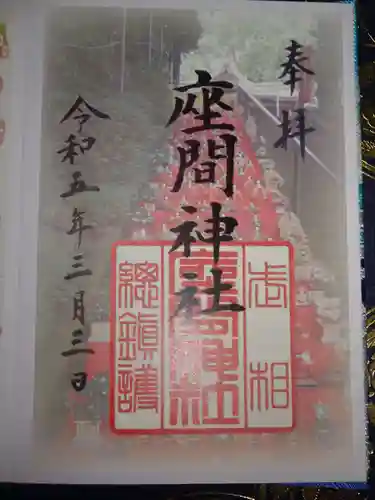 奉拝
座間神社
令和五年三月三日
相武
座間神社
總鎮護